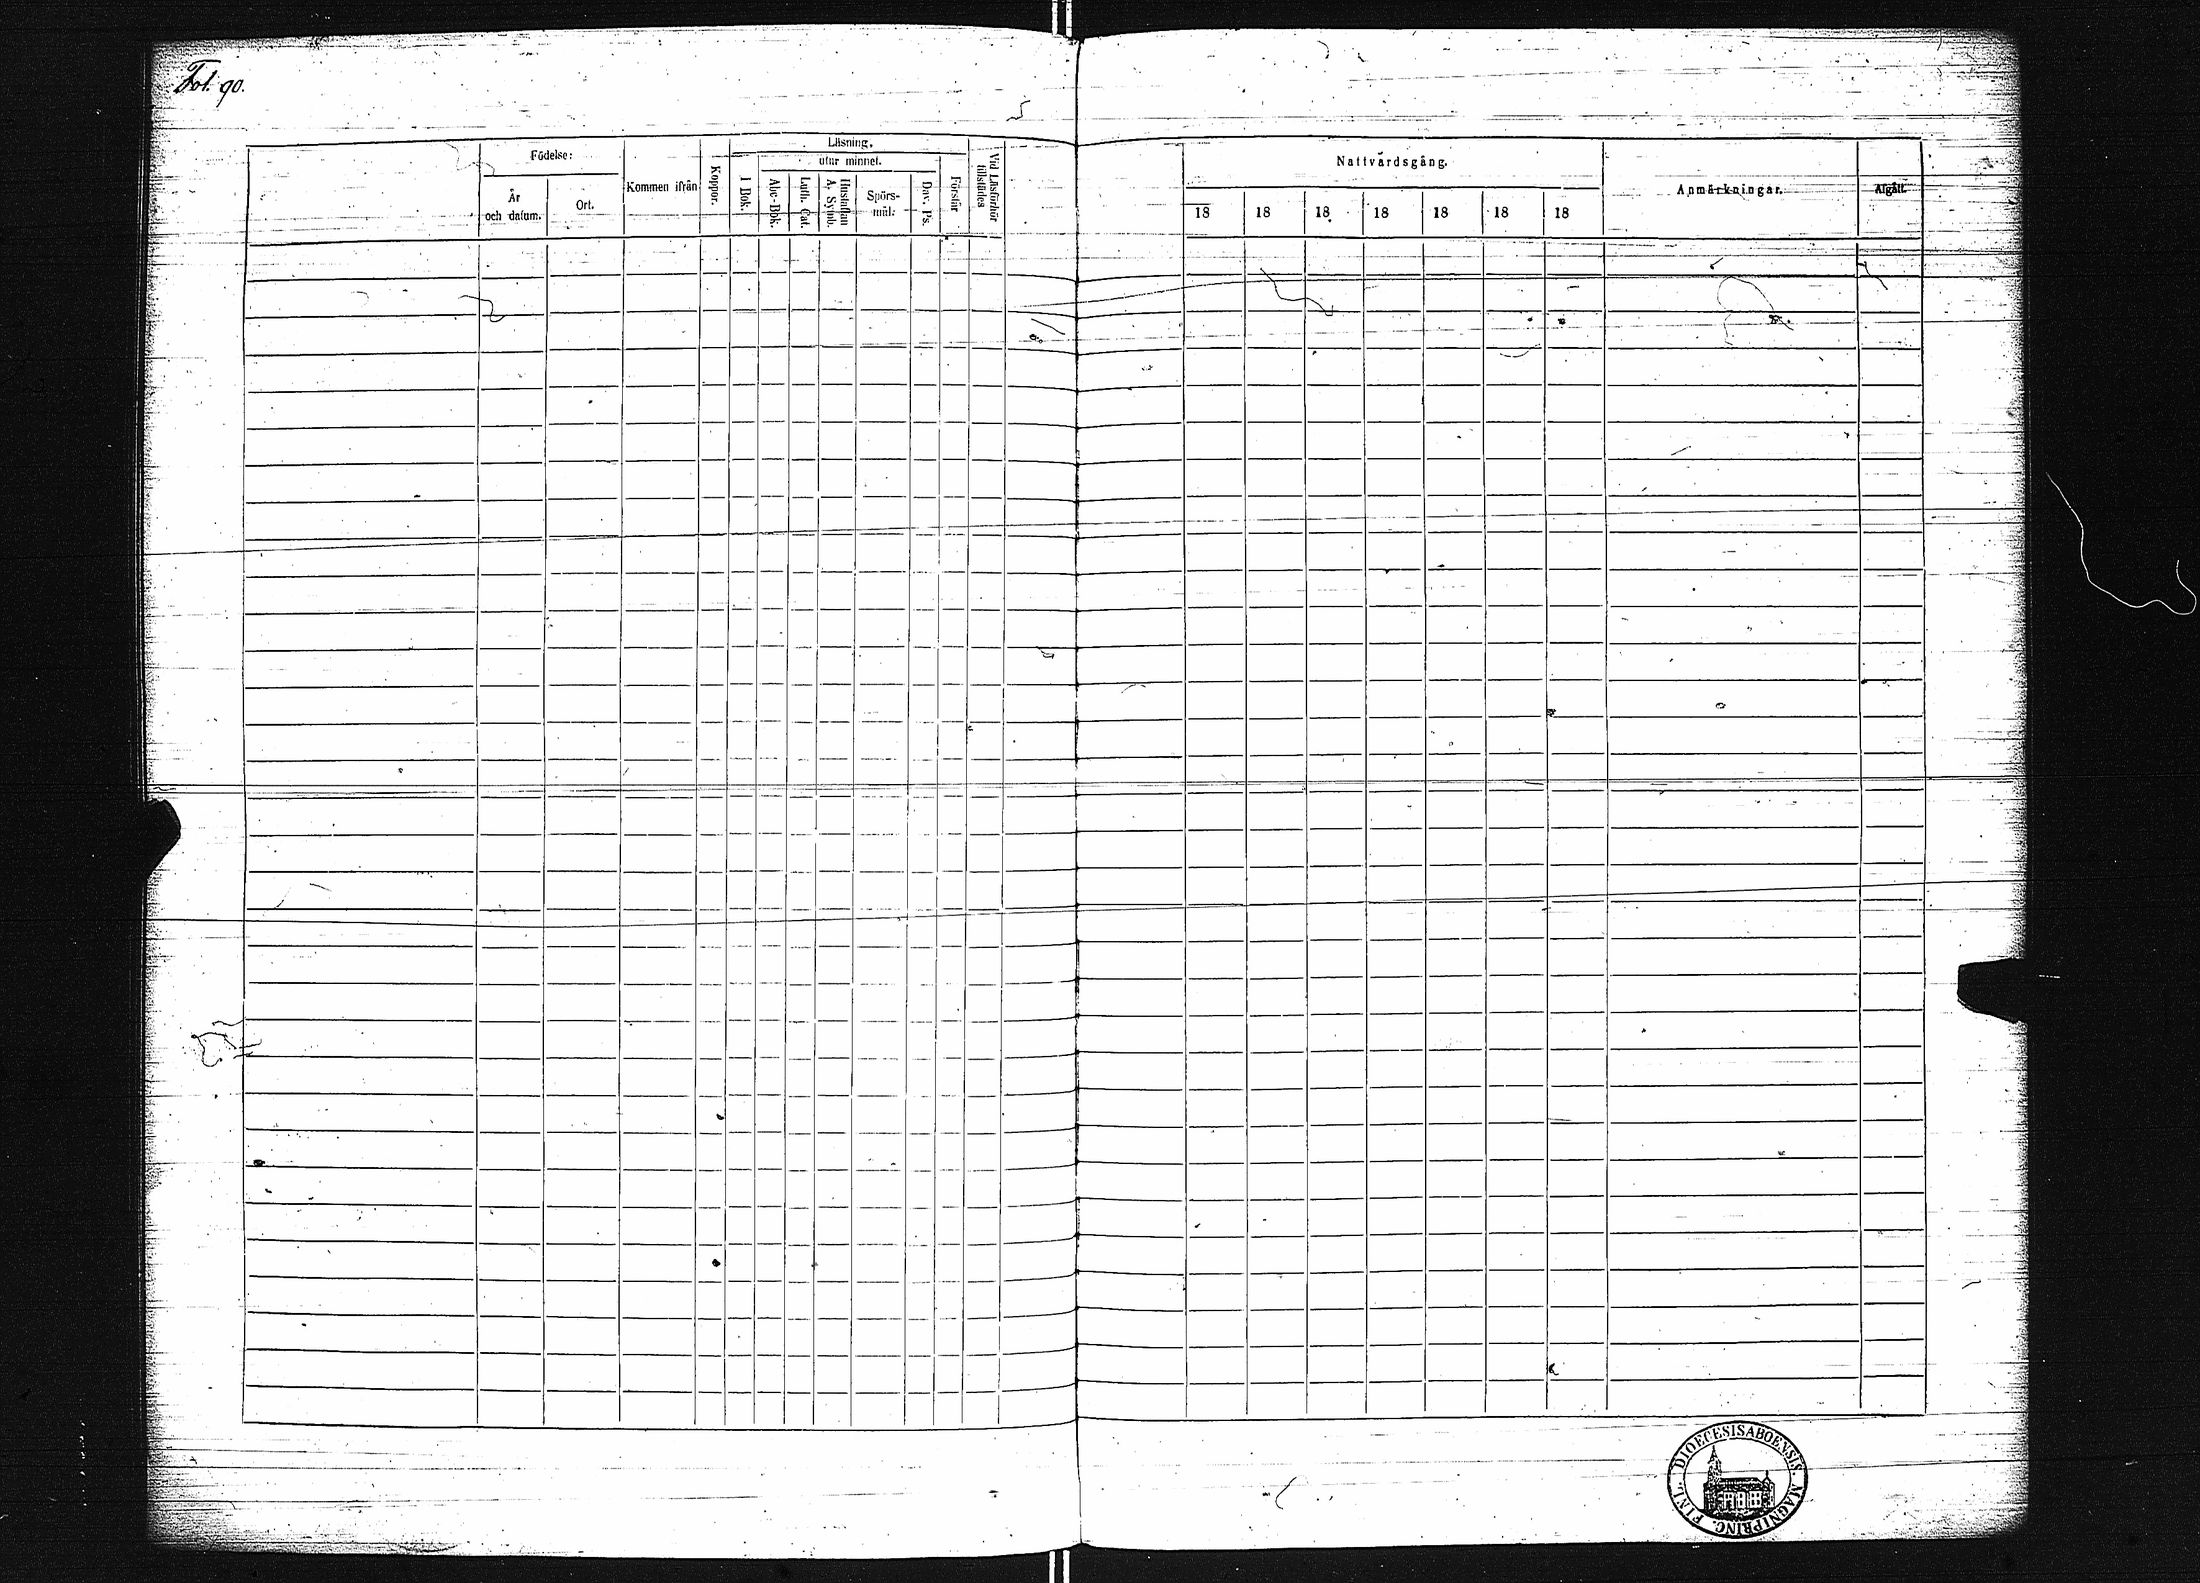 Fol. 90.
Födelse:
År och datum.
Ort.
Kommen ifrån
Koppor.
Läsning,
utur minnet.
I Bok.
Abc-Bok.
Luth. Cat.
Hustaflan A. Symb.
Spörs-mål.
Dav. Ps.
Förstår
Vid Läsförhör tillstädes
Nattvardsgång.
18 18 18 18 18 18 18
Anmärkningar.
Afgått.
DIOECESIS ABOENSIS. MAGNI PRINC. FINL.